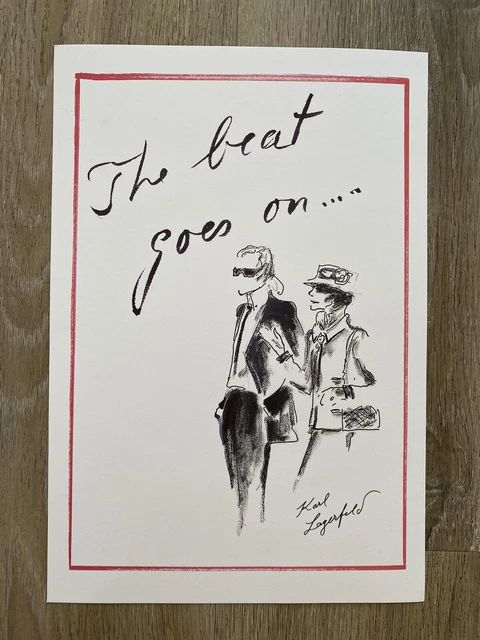 The beat
goes on....
Karl
Lagerfeld